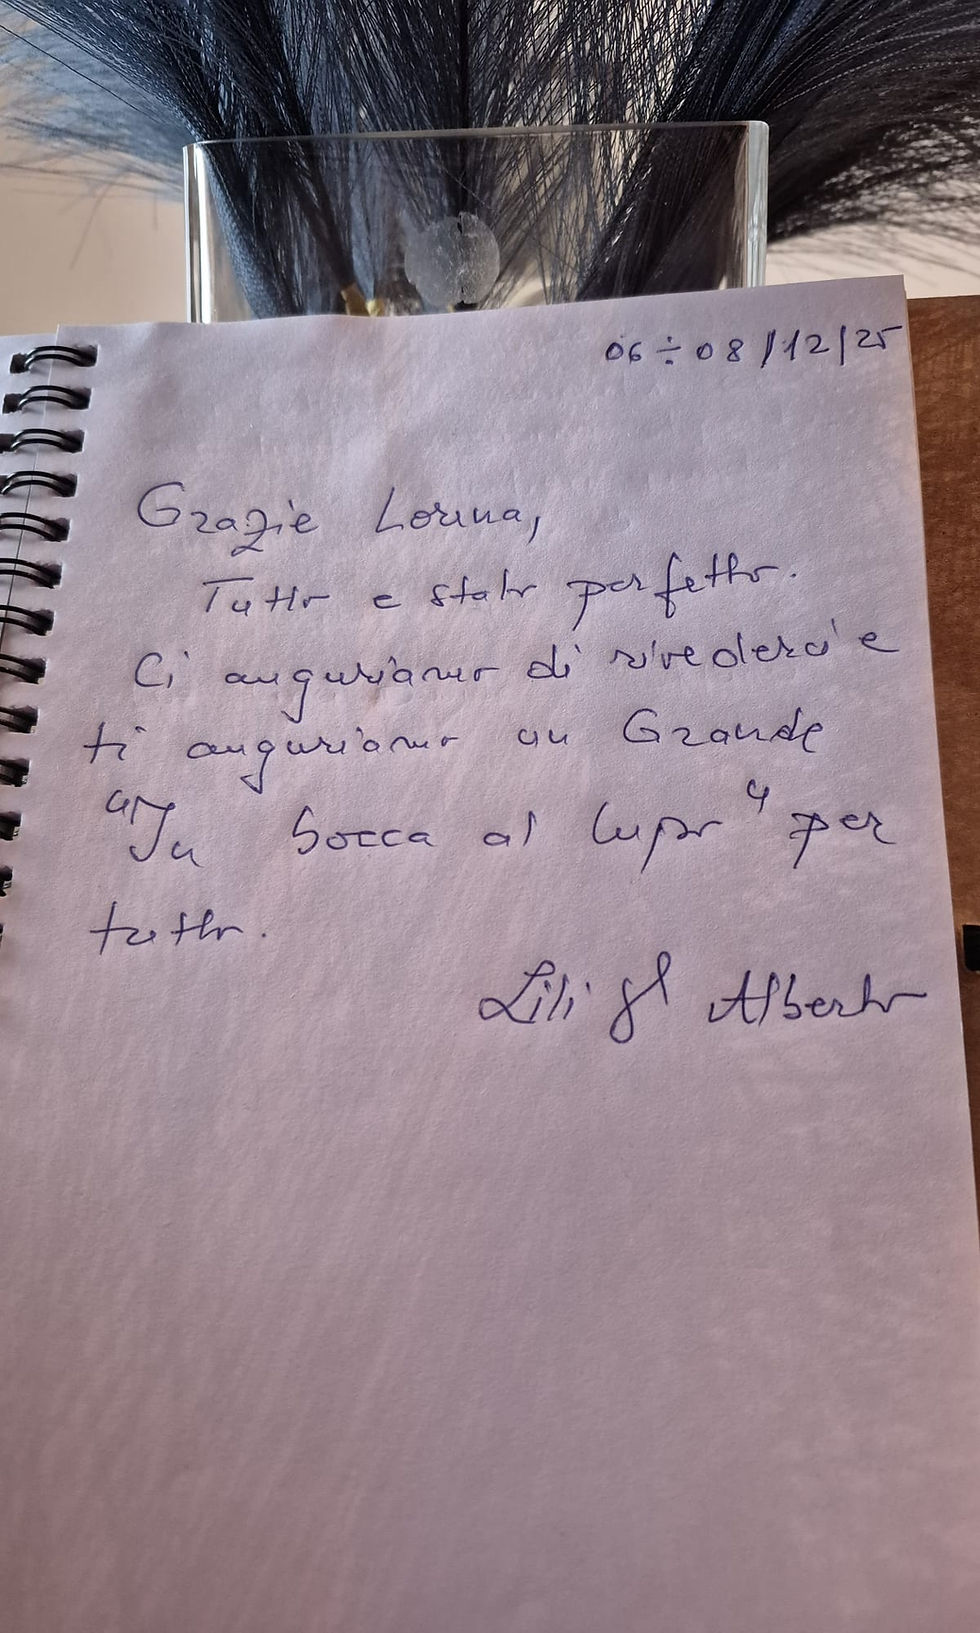 06÷08/12/25
Grazie Lorina,
Tutto e stato perfetto.
Ci auguriamo di rivederci e
ti auguriamo un Grande
"In bocca al lupo" per
tutto.
Lili Alberto